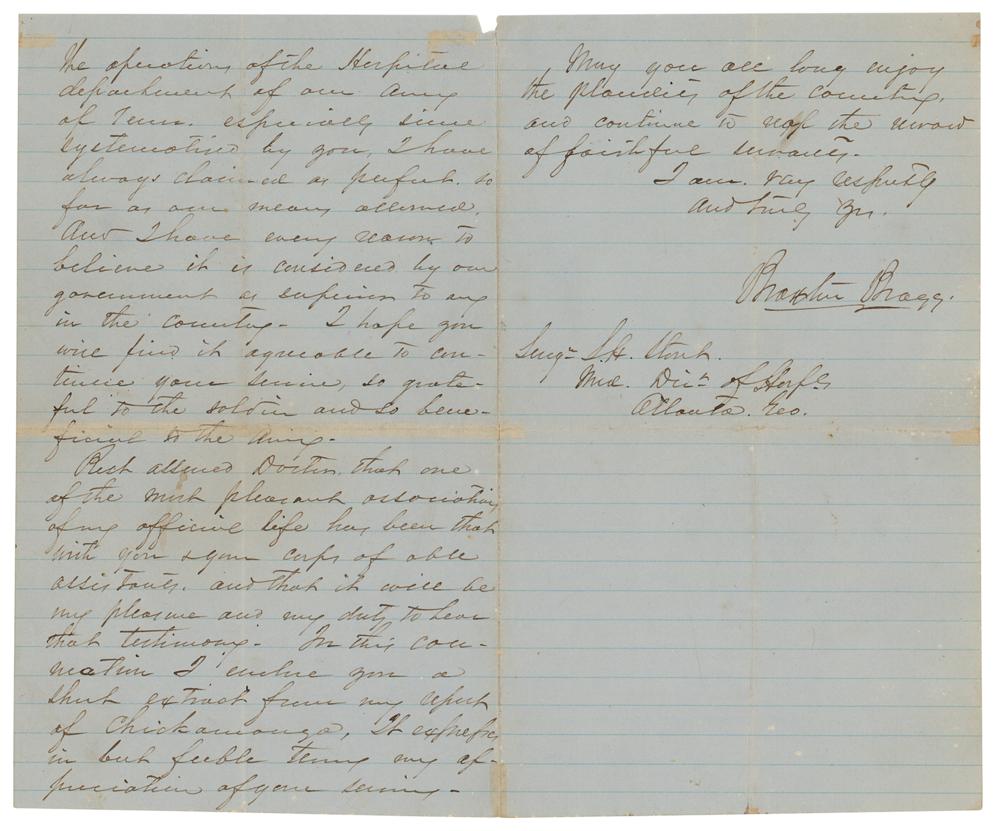 The operations of the Hospital
department of our Army
of Tenn. especially since
systematised by you, I have
always claimed as perfect. so
far as our means allowed.
And I have every reason to
believe it is considered by our
government as superior to any
in the country - I hope you
will find it agreeable to con-
tinue your service, so grate-
ful to the soldier and so bene-
ficial to the Army -
Rest assured Doctor, that one
of the most pleasant associations
of my official life has been that
with you & your corps of able
assistants. and that it will be
my pleasure and my duty to bear
that testimony - In this con-
nection I enclose you a
short extract from my report
of Chickamauga, It expresses
in but feeble terms my ap-
preciation of your services -
May you all long enjoy
the plaudits of the country,
and continue to reap the reward
of faithful servants. -
I am. very respectfy
and truly yrs.
Braxton Bragg.
Surgn S.H. Stout.
Med. Dirr of Hospls
Atlanta. Geo.